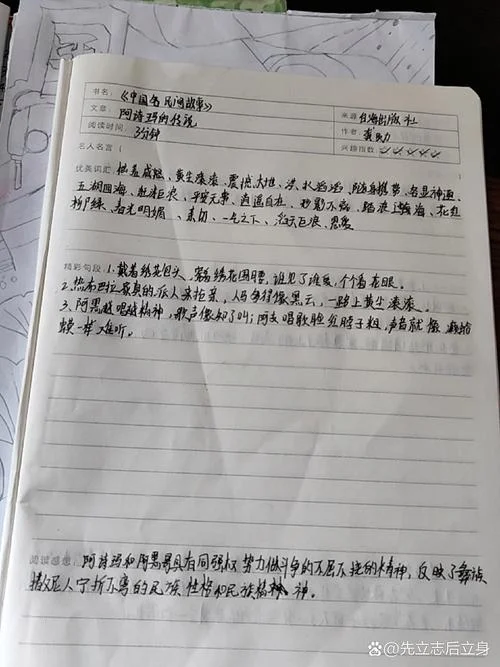 书名：《中国名民间故事》
来源 台海出版社
文章：阿诗玛的传说
作者
阅读时间：3分钟
兴趣指数：
名人名言（
优美词汇 黄尘滚滚、震撼大地、洪水滔滔、随身携带、各显神通、
五湖四海、平安无事、逍遥自在、形影不离、踏浪过海、花红
柳绿、春光明媚、亲切、一气之下、滔天巨浪、恩爱
精彩句段 1、戴着绣花包头、穿着绣花围腰，谁见了谁爱，个个看花眼。
2、热布巴拉家真的派人来抢亲，人马多得像黑云，一路上黄尘滚滚。
3、阿黑越唱越精神，歌声像知了叫；阿支唱歌脸红脖子粗，声音就像癞蛤
蟆一样难听。
阅读感想： 阿诗玛和阿黑具有同强权势力做斗争的不屈不挠的精神，反映了彝族
撒尼人宁折不弯的民族性格和民族精神。
@先立志后立身